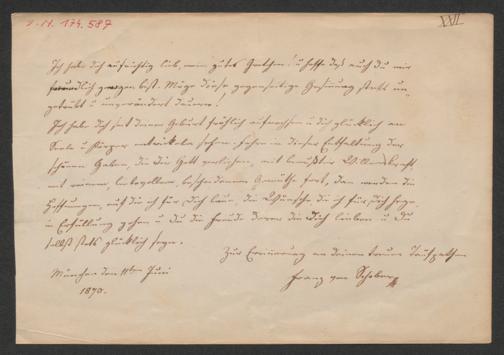 I. N. 174.587
XVI
Ich habe dich aufrichtig lieb, mein gutes Gretchen! u hoffe daß auch du mir
freundlich gewogen bist. Möge diese gegenseitige Gesinnung stets un-
getrübt u unverändert dauern!
Ich habe dich seit deiner Geburt fröhlich aufwachsen u dich glücklich an
Seele u Körper entwickeln sehen. Fahre in dieser Entfaltung der
schönen Gaben, die dir Gott verliehen, mit bewußter Willenskraft,
mit warmem, liebevollem, bescheidenem Gemüthe fort, dann werden die
Hoffnungen, auf die ich für dich baue, die Wünsche die ich für dich hege
in Erfüllung gehen u du die Freude derer die dich lieben u du
selbst stets glücklich seyn.
Zur Erinnerung an deinen treuen Taufpathen
München den 11ten Juni
Franz von Schober
1870.